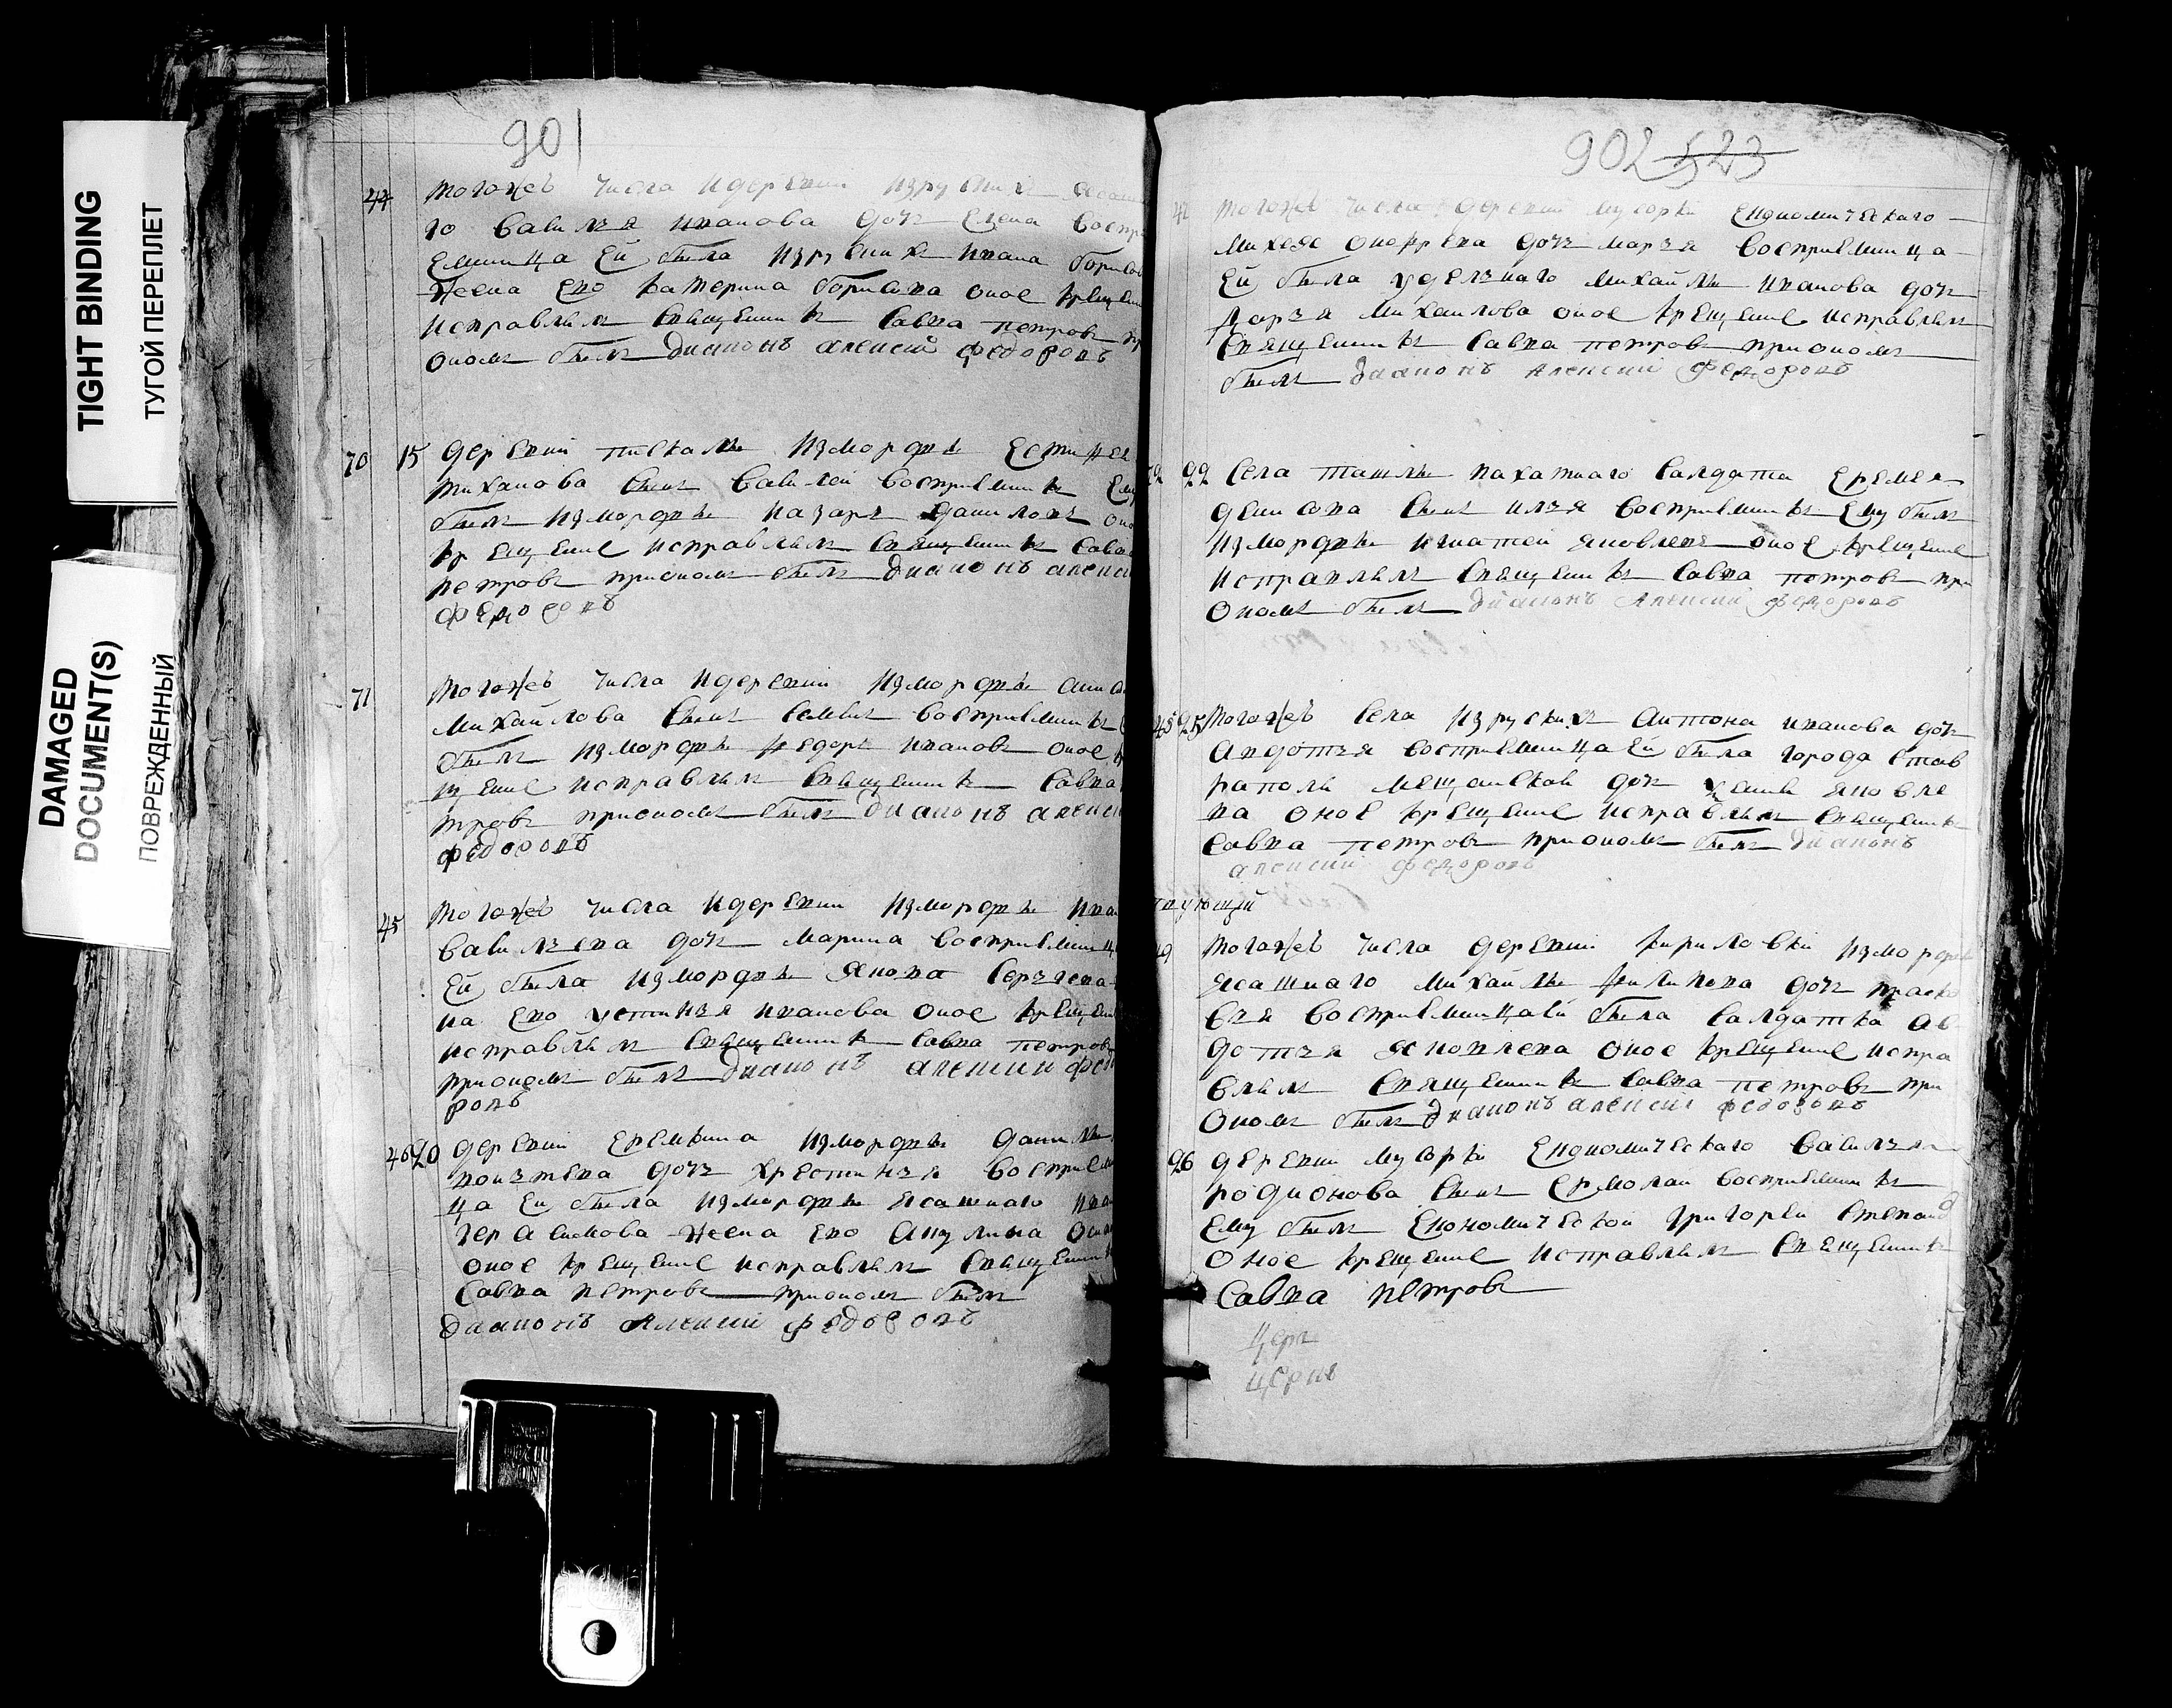 TIGHT BINDING
ТУГОЙ ПЕРЕПЛЕТ
DAMAGED
DOCUMENT(S)
ПОВРЕЖДЕННЫЙ
901
44 тогожъ числа идеревни изрускихъ ясаш
го василья иванова дочь елена воспри
емница ей была изрускихъ ивана борисов
жена ево катерина борисова оное крещени
исправлялъ священникъ савва петровъ пр
ономъ былъ диаконъ алексий федоровъ
70 15 деревни пискалы измордвы
тиханова сынъ василей восприемникъ ему
былъ измордвы назаръ даниловъ оно
крещение исправлялъ священникъ савва
петровъ приономъ былъ диаконъ алекси
федоровъ
71 тогожъ числа идеревни измордвы
михайлова сынъ семенъ восприемникъ
былъ измордвы федоръ ивановъ оное к
щение исправлялъ священникъ савва
тровъ приономъ былъ диаконъ алекси
федоровъ
45 тогожъ числа идеревни измордвы ива
васильева дочь марина восприемниц
ей была измордвы якова сергеева
на ево устинья иванова оное крещени
исправлялъ священникъ савва петровъ
приономъ былъ диаконъ алексии фед
ровъ
46 20 деревни еремкина измордвы данилы
дочь христинья восприемни
ца ей была измордвы ясашнаго ива
герасимова жена ево акулина
оное крещение исправлялъ священникъ
савва петровъ приономъ былъ
диаконъ алексий федоровъ
902 523
47 тогожъ числа деревни мусорки економическаго
михея дочь марья восприемница
ей была удельнаго михайлы иванова дочь
дарья михаилова оное крещение исправлялъ
священникъ савва петровъ приономъ
былъ диаконъ алексий федоровъ
72 22 села ташлы пахатнаго салдата еремея
денисова сынъ илья восприемникъ ему былъ
измордвы игнатей яковлевъ оное крещение
исправлялъ священникъ савва петровъ при
ономъ былъ диаконъ алексий федоровъ
48 25 тогожъ села изрускихъ антона иванова дочь
авдотья восприемница ей была города став
раполя мещанской дочь яковле
ва оное крещение исправлялъ священникъ
савва петровъ приономъ былъ диаконъ
алексии федоровъ
49 тогожъ числа деревни кириловки измордвы
ясашнаго михайлы филипова дочь праско
вья восприемницаей была салдатка ав
дотья яковлева оное крещение испра
влялъ священникъ савва петровъ при
ономъ былъ диаконъ алексии федоровъ
26 деревни мусорки економическаго василья
родионова сынъ ермолаи восприемникъ
ему былъ економической григореи степанов
оное крещение исправлялъ священникъ
савва петровъ
церк
церкв